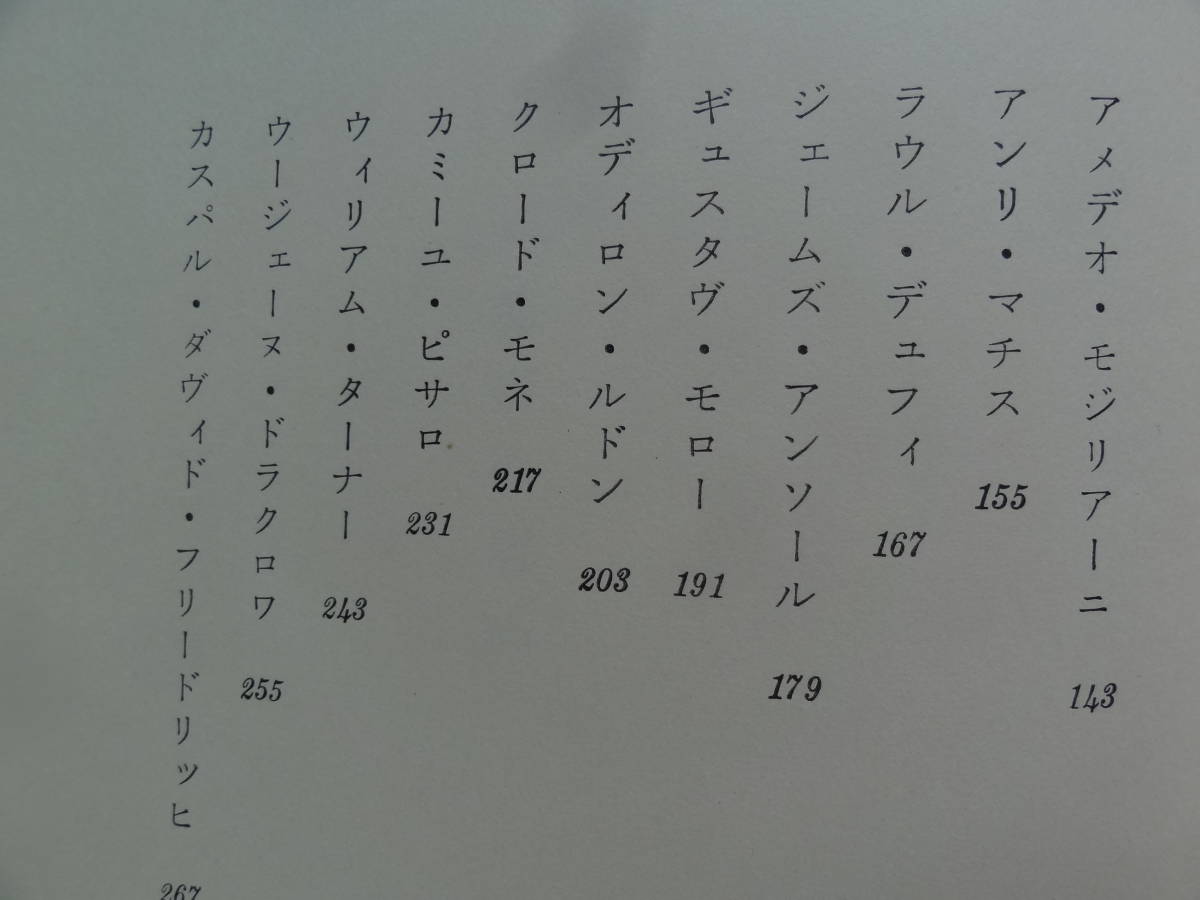 アメデオ・モジリアーニ 143
アンリ・マチス 155
ラウル・デュフィ 167
ジェームズ・アンソール 179
ギュスタヴ・モロー 191
オディロン・ルドン 203
クロード・モネ 217
カミーユ・ピサロ 231
ウィリアム・ターナー 243
ウージェーヌ・ドラクロワ 255
カスパル・ダヴィド・フリードリッヒ 267